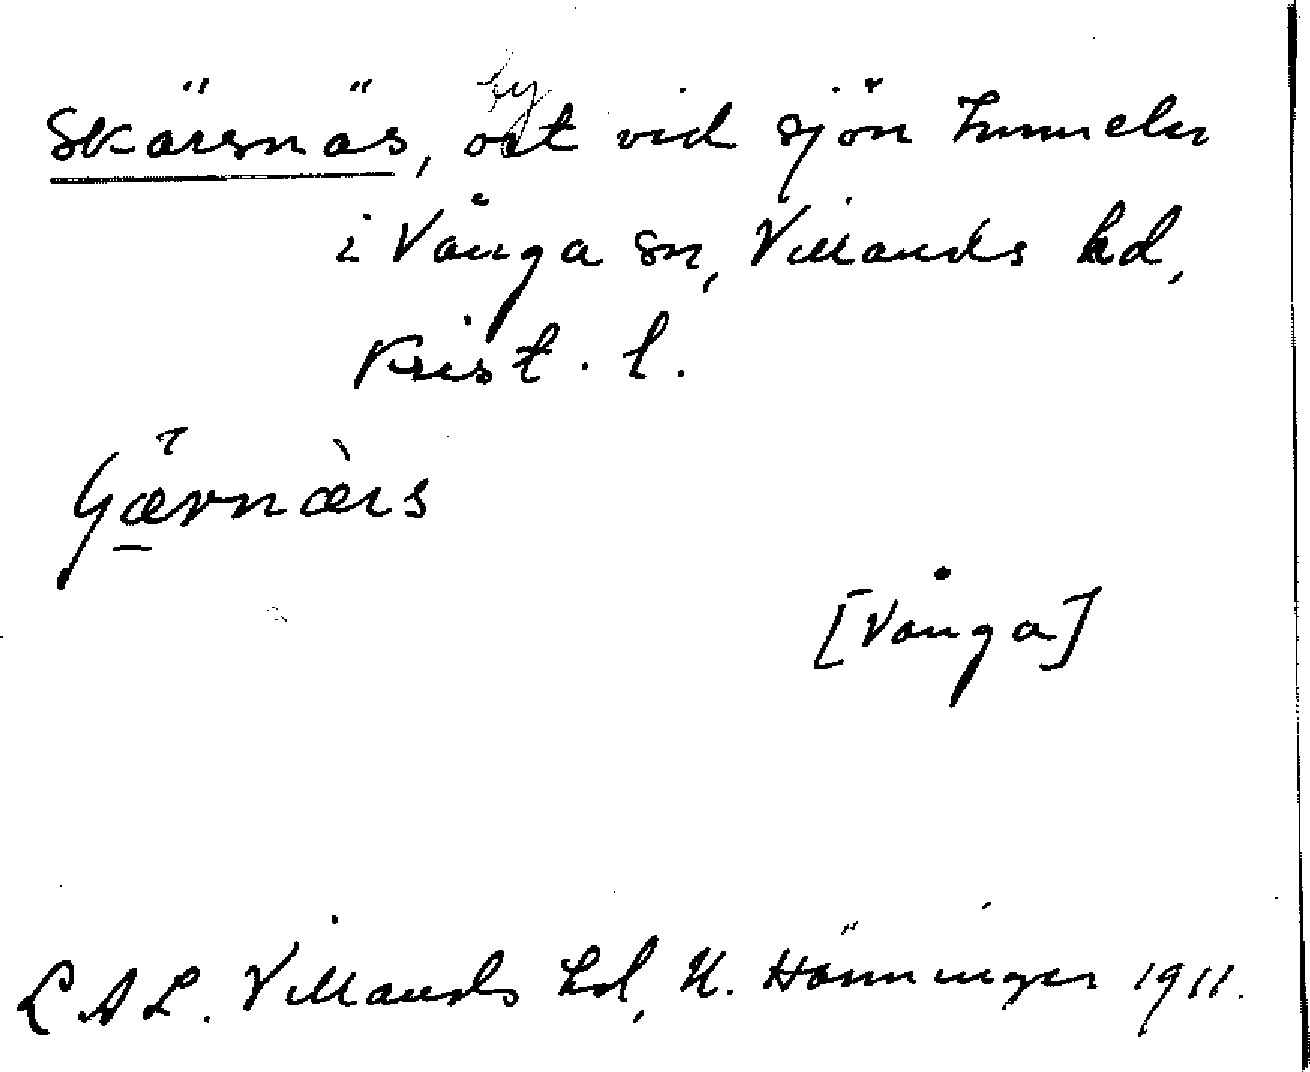 by
Skärsnäs, ort vid sjön Immeln
i Vånga sn, Villands hd,
Krist. l.
[Vånga]
L A L. Villands hd, N. Hänninger 1911.